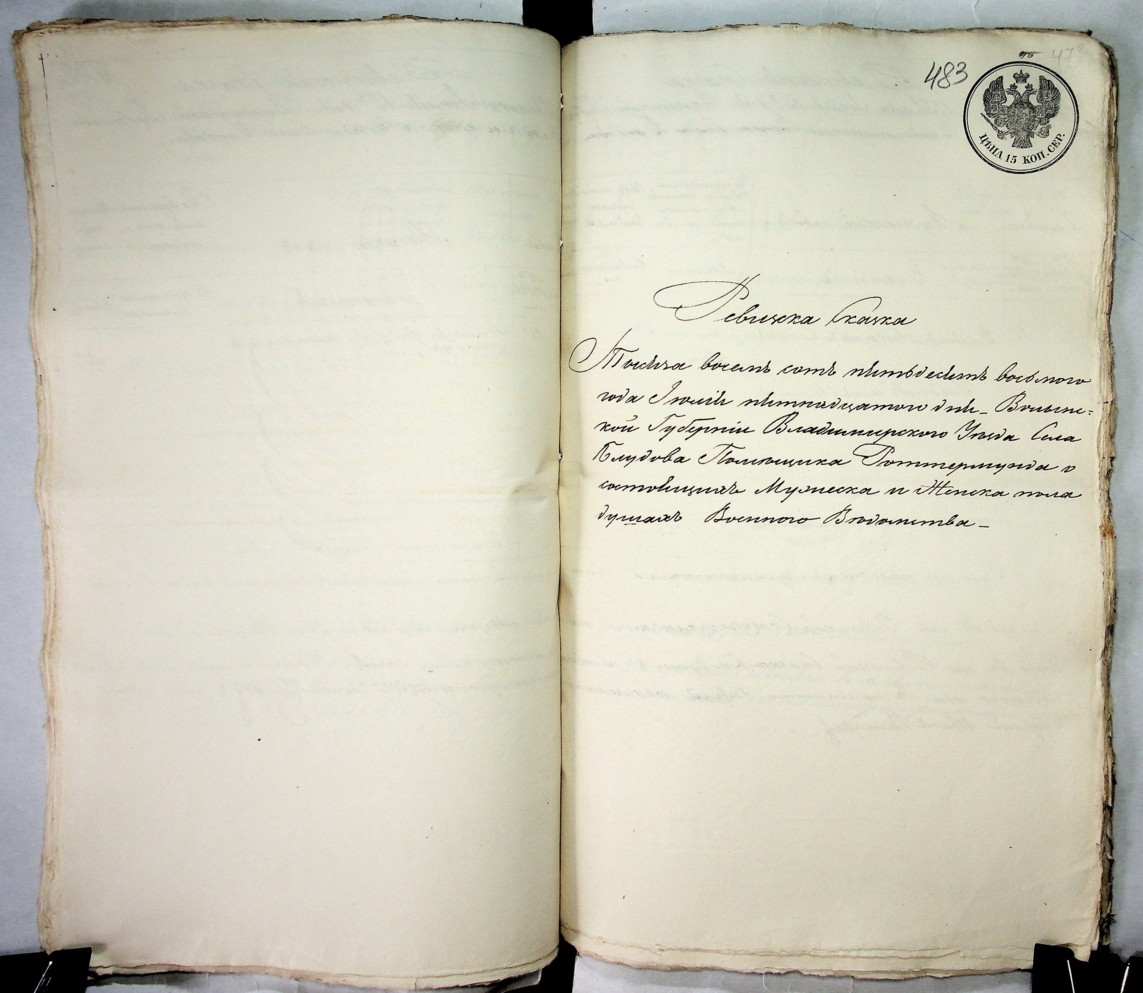 483
ЦѢНА 15 КОП. СЕР.
Ревизска Сказка
Тысяча восемь сотъ пятьдесятъ восьмого
года Іюлія пятнадцатого дня_ Волынс=
кой Губерніи Владимирского Уѣзда Села
Блудова Помѣщика Роттермунда о
состоящихъ Мужеска и Женска пола
душахъ Военного Вѣдомства_